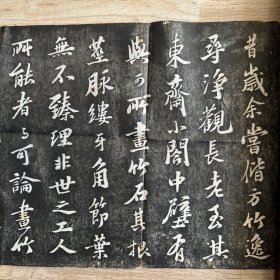 昔歲余嘗偕方竹逸
尋淨觀長老至其
東齋小閣中壁有
與可所畫竹石其根
莖脉縷牙角節葉
無不臻理非世之工人
所能者與可論畫竹